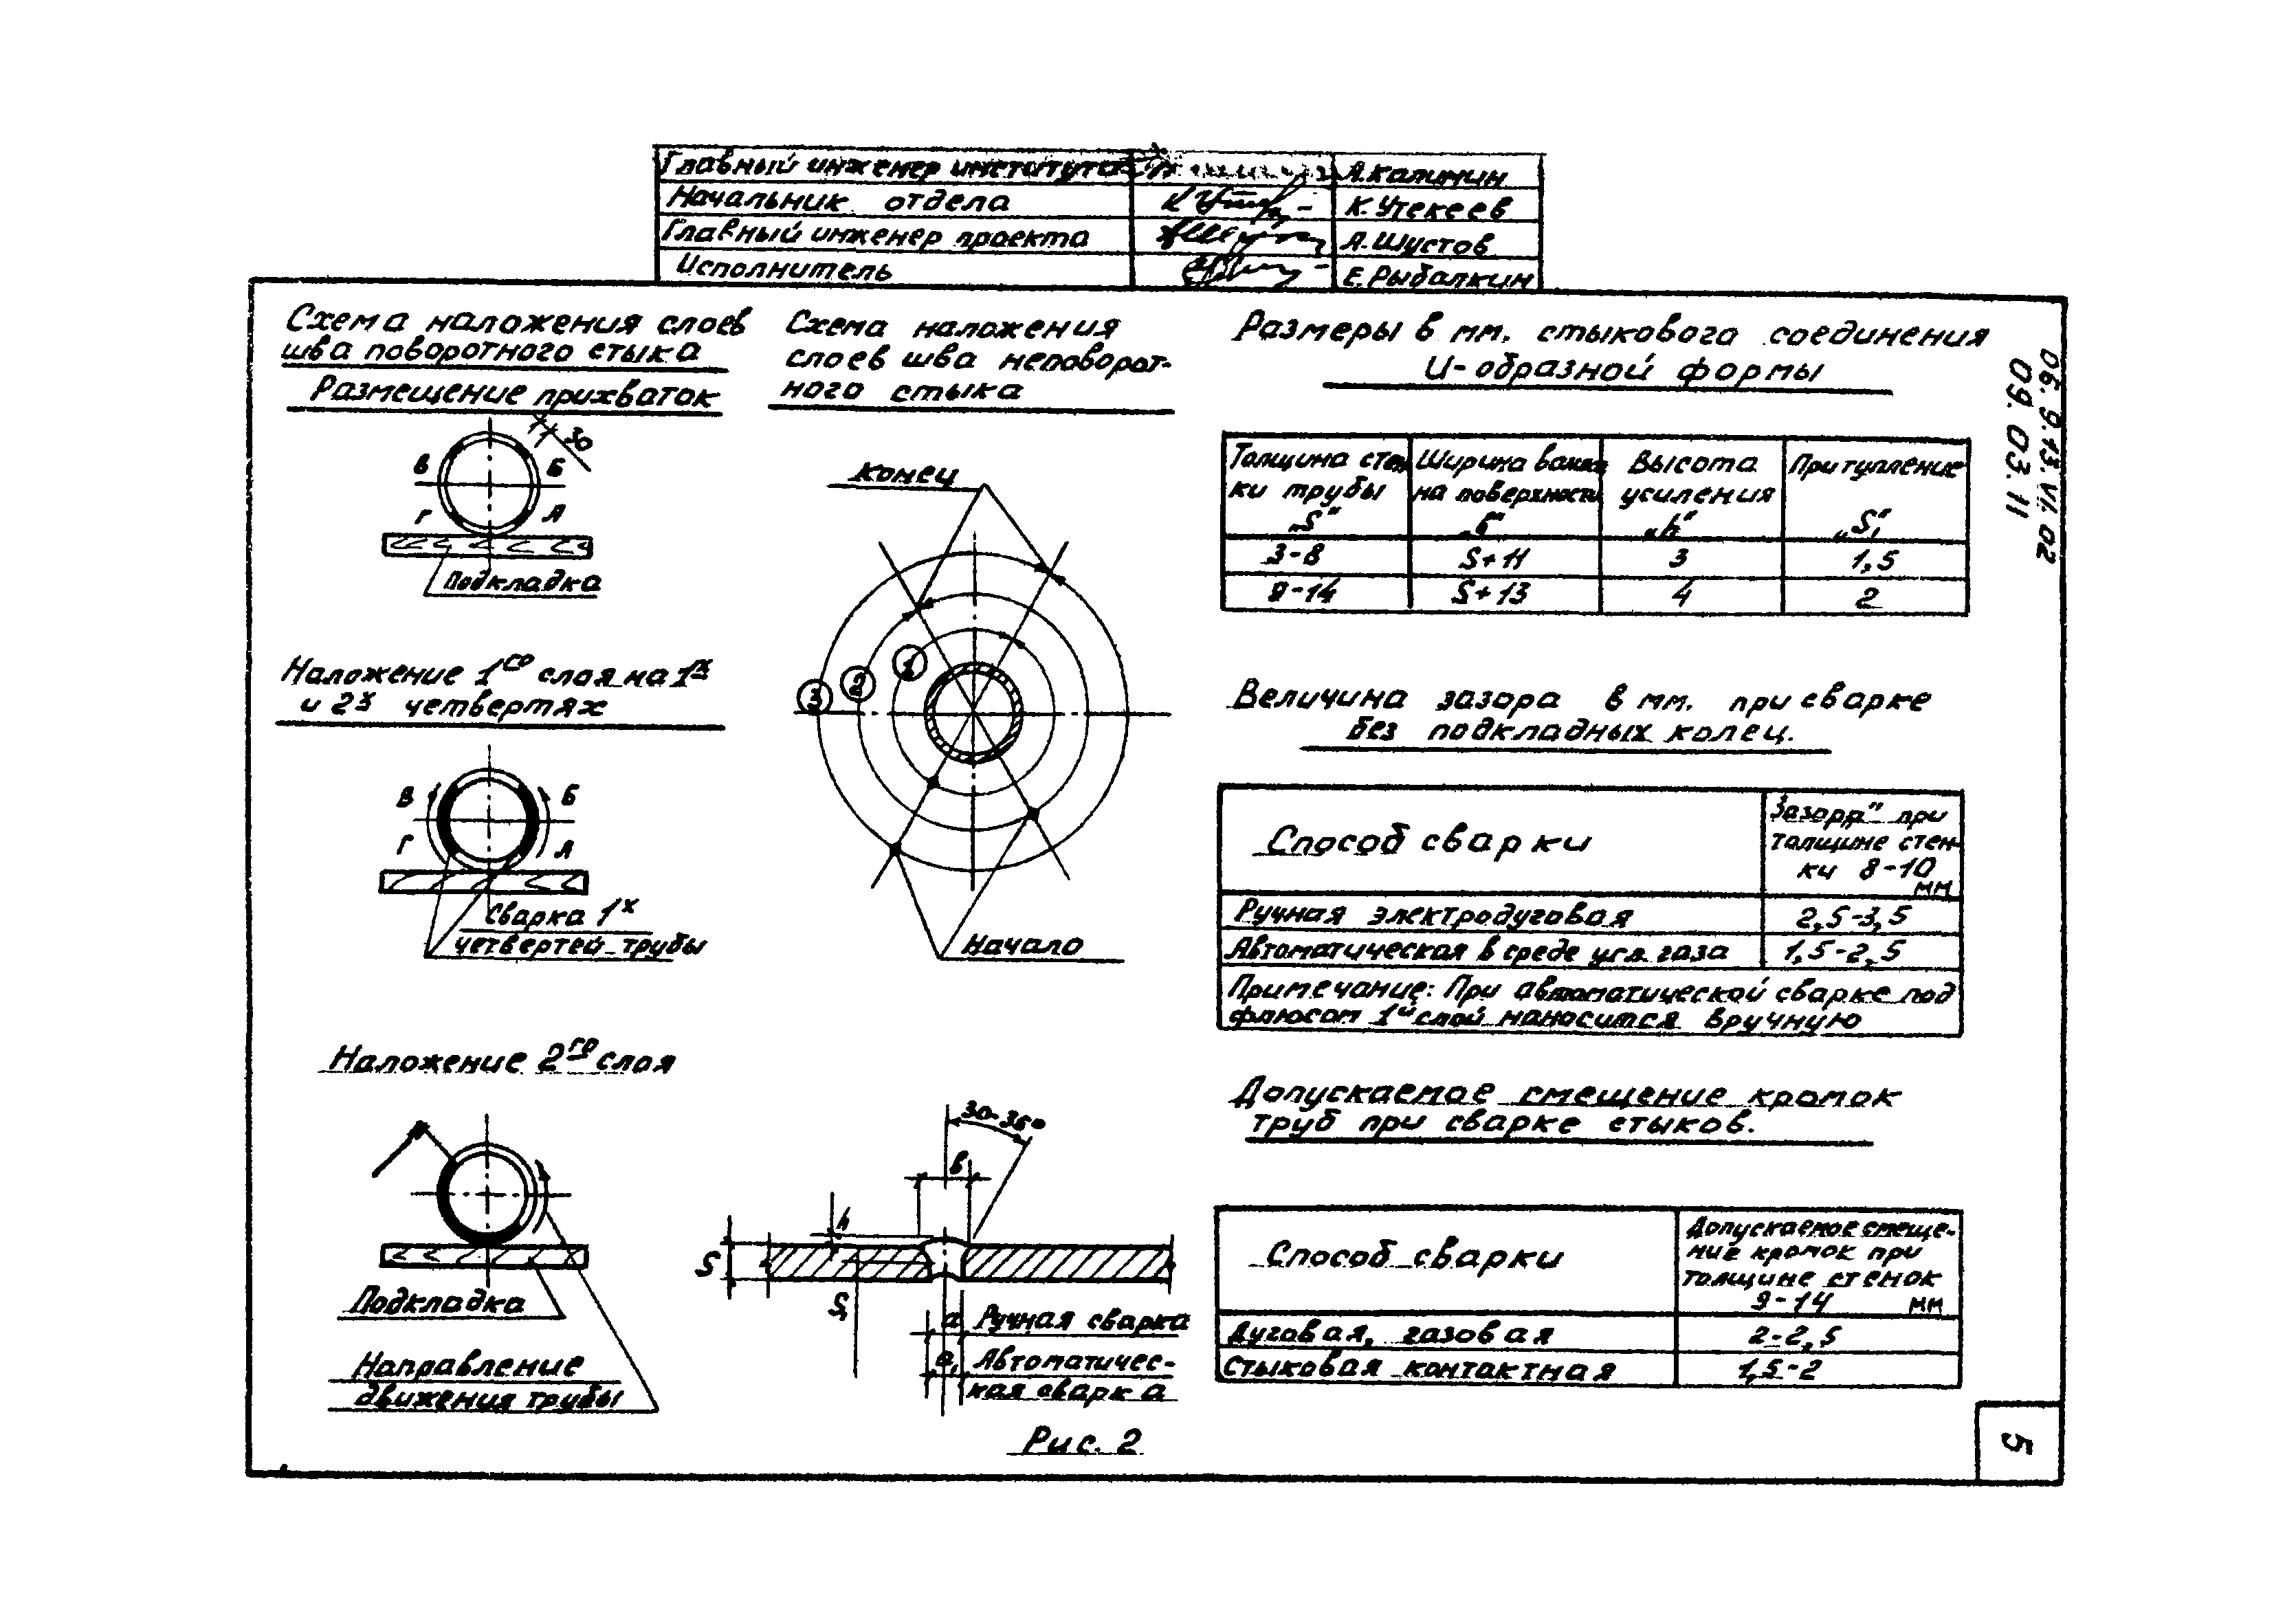 Главный инженер института А.Калинин
Начальник отдела К.Утекеев
Главный инженер проекта А.Шустов
Исполнитель Е.Рыбалкин
Схема наложения слоев
шва поворотного стыка
Размещение прихваток
30
В Б
Г А
Подкладка
Наложение 1го слоя на 1х
и 2х четвертях
В Б
Г А
Сварка 1х
четвертей трубы
Наложение 2го слоя
Подкладка
Направление
движения трубы
Схема наложения
слоев шва неповорот-
ного стыка
конец
1
2
3
Начало
30-35°
в
h
S
S1
а Ручная сварка
а1 Автоматичес-
кая сварка
Рис. 2
Размеры в мм. стыкового соединения
U-образной формы
Толщина стен Ширина ванны Высота Притупление
ки трубы на поверхности усиления
„S“ „в“ „h“ „S1“
3-8 S+11 3 1,5
9-14 S+13 4 2
Величина зазора в мм. при сварке
без подкладных колец.
Способ сварки
при
толщине стен-
ки 8-10
мм
Ручная электродуговая 2,5-3,5
Автоматическая в среде угл. газа 1,5-2,5
Примечание: При автоматической сварке под
флюсом 1й слой наносится вручную
Допускаемое смещение кромок
труб при сварке стыков.
Способ сварки
Допускаемое смеще-
ние кромок при
толщине стенок
9-14 мм
Дуговая, газовая 2-2,5
Стыковая контактная 1,5-2
06.9.13.VI.02
09.03.11
5